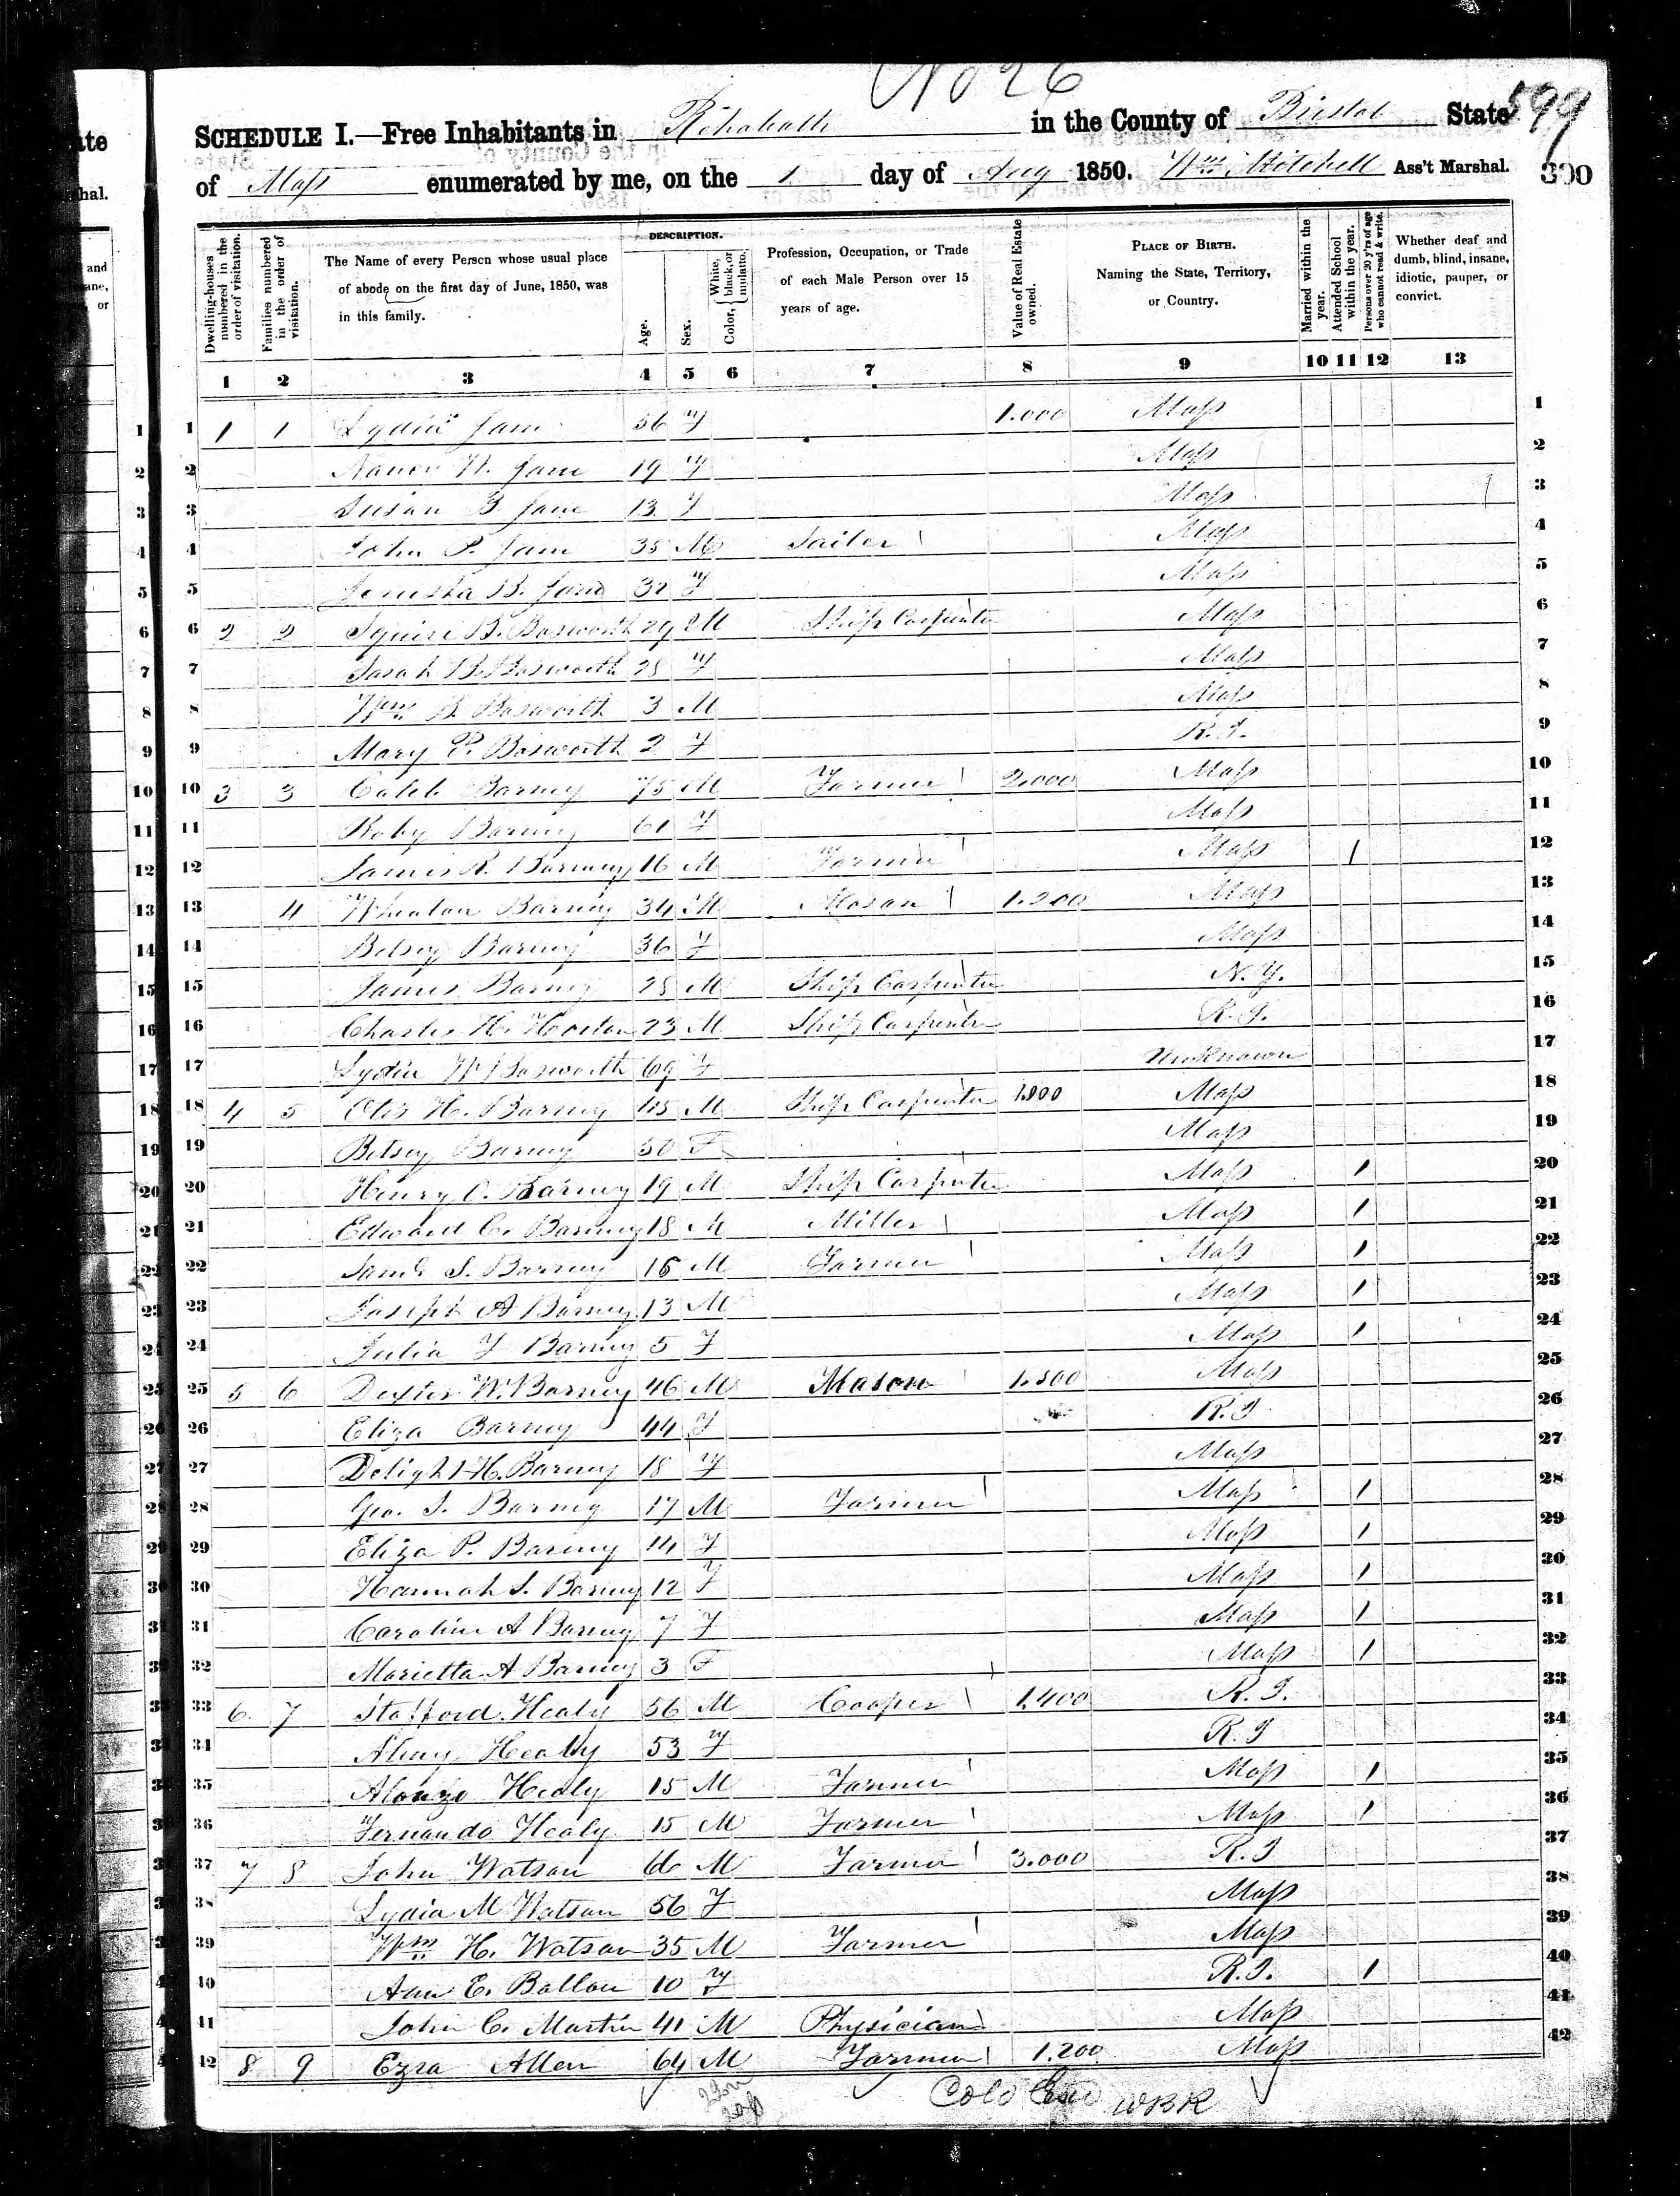 No 26
SCHEDULE I.—Free Inhabitants in Rehoboth in the County of Bristol State 599
of Mass enumerated by me, on the 1 day of Aug 1850. Wm Mitchell Ass't Marshal. 300
Dwelling-houses numbered in the order of visitation.
Families numbered in the order of visitation.
The Name of every Person whose usual place of abode on the first day of June, 1850, was in this family.
DESCRIPTION.
Age.
Sex.
Color, { White, black, or mulatto.
Profession, Occupation, or Trade of each Male Person over 15 years of age.
Value of Real Estate owned.
PLACE OF BIRTH. Naming the State, Territory, or Country.
Married within the year.
Attended School within the year.
Persons over 20 y'rs of age who cannot read & write.
Whether deaf and dumb, blind, insane, idiotic, pauper, or convict.
1 2 3 4 5 6 7 8 9 10 11 12 13
1 1 1 Lydia 56 F 1.000 Mass 1
2 19 F Mass 2
3 Susan 13 F Mass 3
4 John P. 35 M Mass 4
5 B. F Mass 5
6 2 2 Squire B. Bosworth 29 M Ship Carpenter Mass 6
7 Sarah B. Bosworth 28 F Mass 7
8 Wm B Bosworth 3 M Mass 8
9 Mary P. Bosworth 2 F R.I. 9
10 3 3 Caleb Barney 75 M Farmer 2.000 Mass 10
11 Roby Barney 61 F Mass 11
12 James R. Barney 16 M Farmer Mass 1 12
13 4 Wheaton Barney 34 M Mason 1.200 Mass 13
14 Betsey Barney 36 F Mass 14
15 James Barney 28 M Ship Carpenter N.Y. 15
16 Charles H. Horton 23 M Ship Carpenter R.I. 16
17 Lydia W Bosworth 69 F Unknown 17
18 4 5 Otis H. Barney 45 M Ship Carpenter Mass 18
19 Betsey Barney 50 F Mass 19
20 Henry O. Barney 19 M Ship Carpenter Mass 1 20
21 Edward C. Barney 18 M Miller Mass 1 21
22 Saml S. Barney 16 M Farmer Mass 1 22
23 Joseph A Barney 13 M Mass 1 23
24 Julia F Barney 5 F Mass 1 24
25 5 6 Dexter W. Barney 46 M Mason Mass 25
26 Eliza Barney 44 F R.I 26
27 Delight H. Barney 18 F Mass 27
28 Geo. S. Barney 17 M Farmer Mass 1 28
29 Eliza P. Barney 14 F Mass 1 29
30 Hannah S. Barney 12 F Mass 1 30
31 Caroline A Barney 7 F Mass 1 31
32 Marietta A Barney 3 F Mass 1 32
33 6 7 Stafford Healy 56 M Cooper 1.400 R.I. 33
34 Healy 53 F R.I 34
35 Alonzo Healy 15 M Farmer Mass 1 35
36 Fernando Healy 15 M Farmer Mass 1 36
37 7 8 John Watson 66 M Farmer 3.000 R.I 37
38 Lydia M Watson 56 F Mass 38
39 Wm H. Watson 35 M Farmer Mass 39
40 Ann E. Ballou 10 F R.I. 1 40
41 John C. Martin 41 M Physician Mass 41
42 8 9 Ezra Allen 64 M Farmer 1.200 Mass 42
WBR